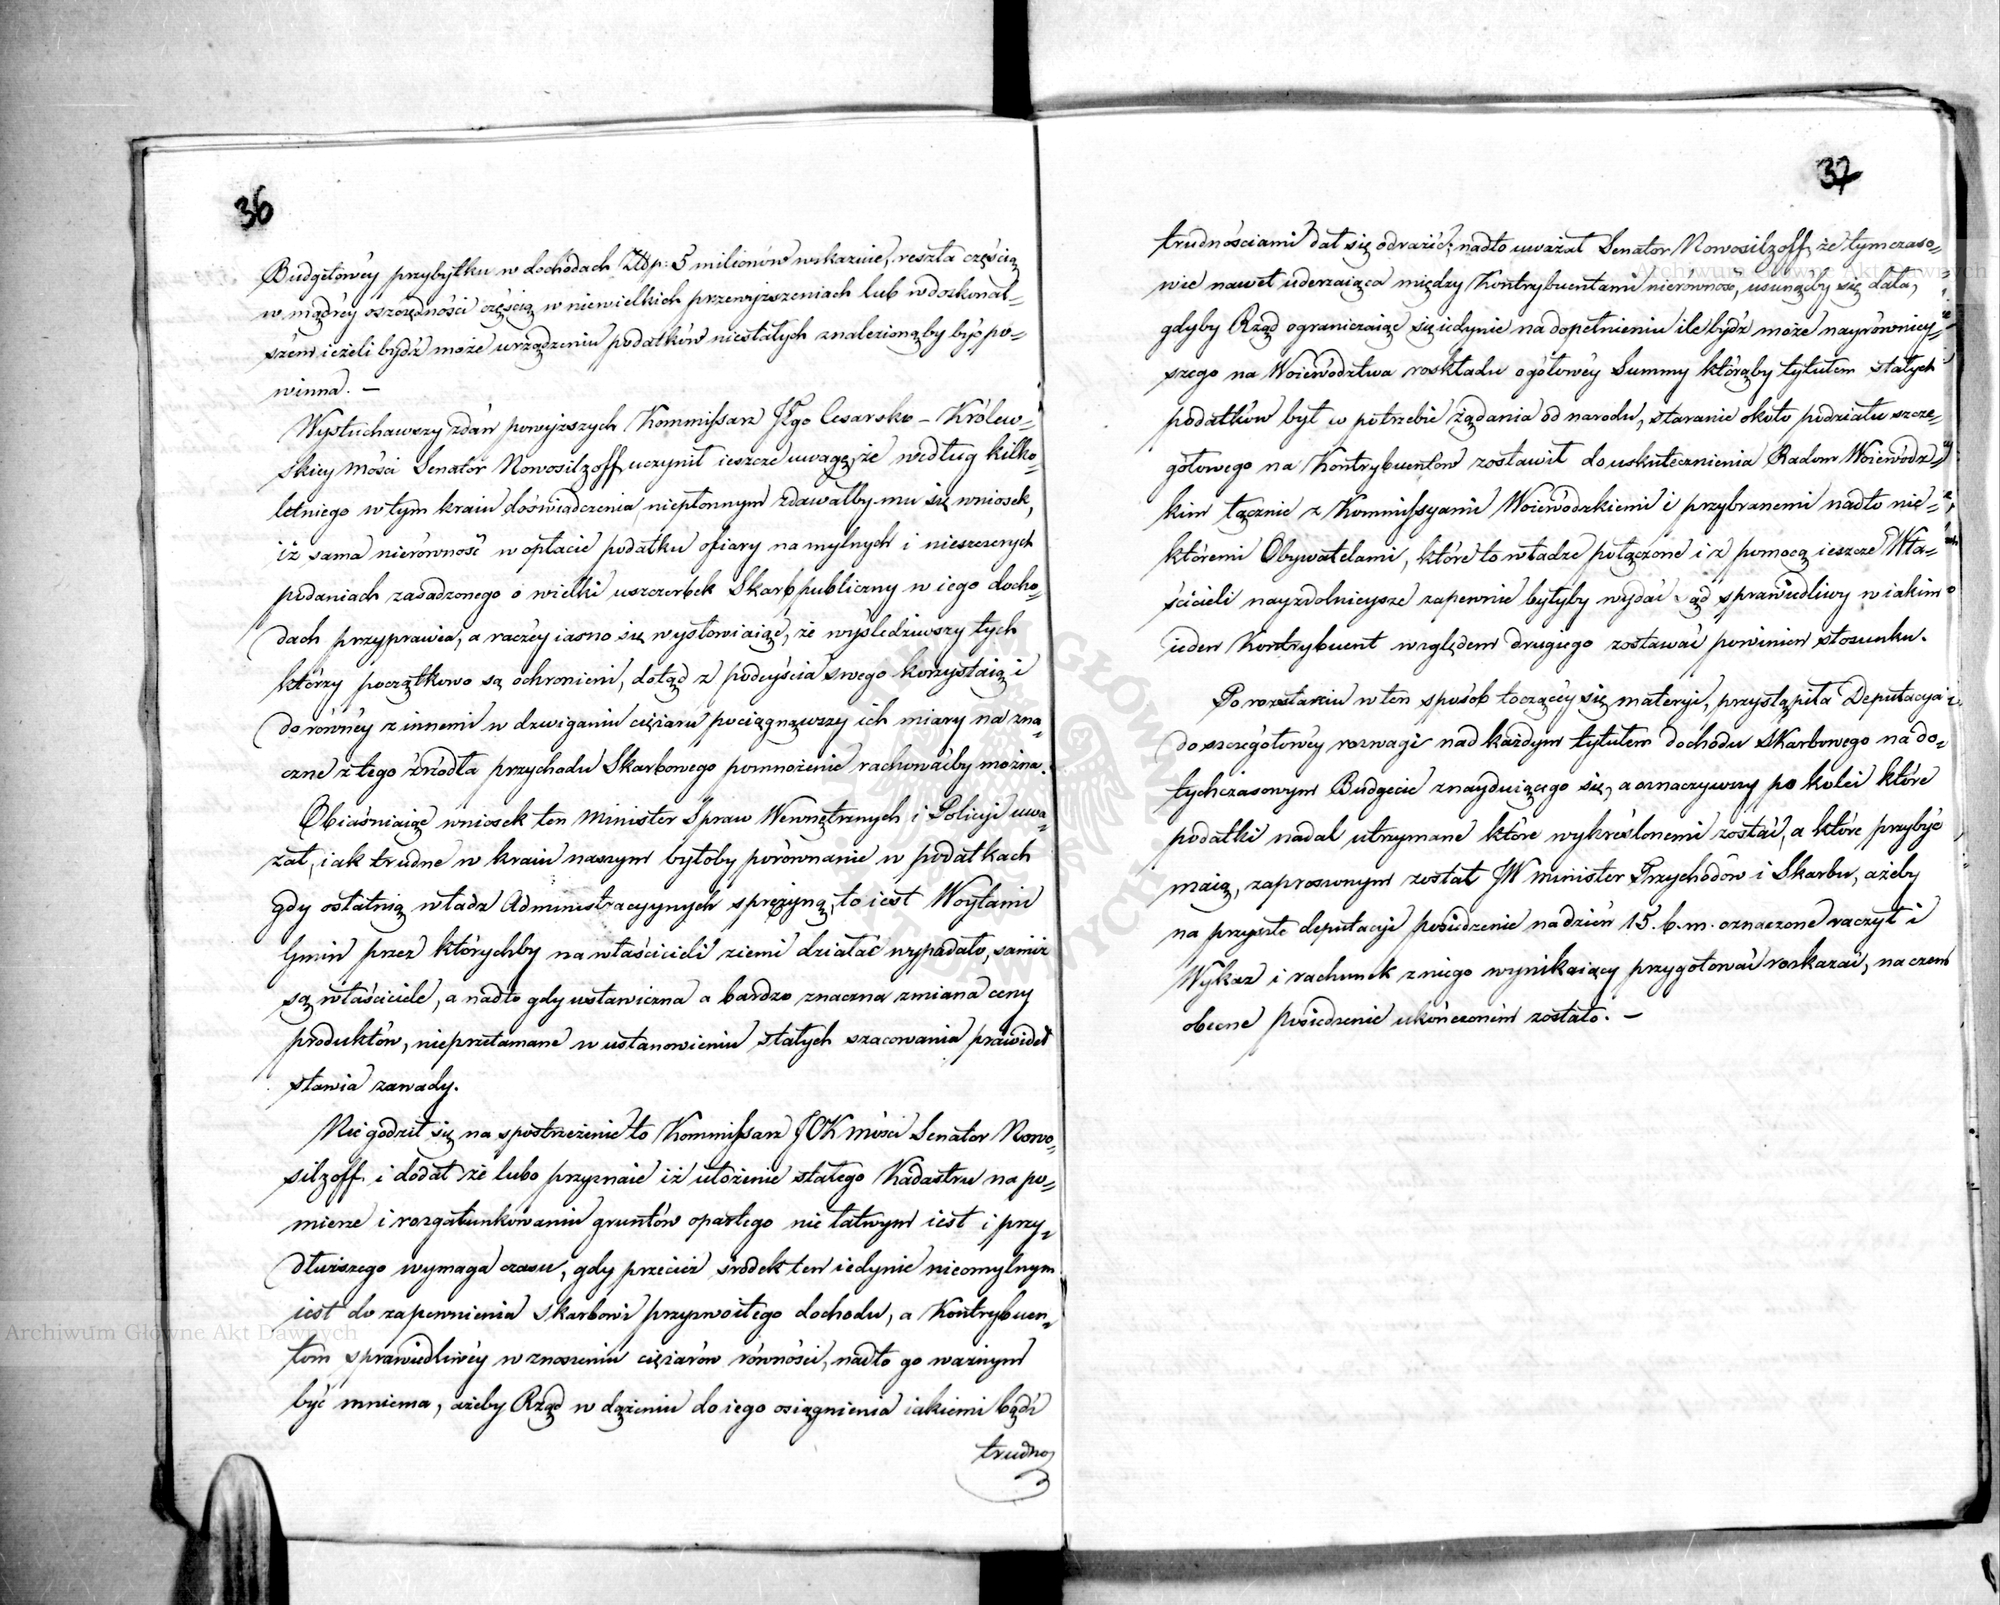 36
Budgetowéy przybytku w dochodach Złłp: 5 milionów wskazuie, reszta częścią
w mądréy oszczędności częścią w niewielkich przewyższeniach lub w doskonal-
szém ieżeli bydź może urządzeniu podatków niestałych znalezionąby być po-
winna. —
Wysłuchawszy zdań powyższych Kommissarz Jego Cesarsko - Królew-
skiey Mości Senator Nowosilzoff, uczynił ieszcze uwagę, że według kilko-
letniego w tym kraiu doświadczenia, niepłonnym zdawałby mu się wniosek,
iż sama nierówność w opłacie podatku ofiary na mylnych i nieszczerych
podaniach zasadzonego o wielki uszczerbek Skarb publiczny w iego docho-
dach przyprawia, a raczéy iasno się wysłowiaiąc, że wyśledziwszy tych
którzy początkowo są ochronieni, dotąd z podeyścia swego korzystaią i
do równéy z innemi w dzwiganiu ciężaru pociągnąwszy ich miary na zna-
czne z tego źródła przychodu Skarbowego pomnożenie rachowaćby można.
Obiaśniaiąc wniosek ten Minister Spraw Wewnętrznych i Policyi uwa-
żał, iak trudne w kraiu naszym byłoby porównanie w podatkach
gdy ostatnią władz Administracyynych sprężyną, to iest Woytami
Gmin przez którychby na właścicieli ziemi działać wypadało, samiż
są właściciele, a nadto gdy ustawiczna a bardzo znaczna zmiana ceny
produktów, nieprzełamane w ustanowieniu stałych szacowania prawideł
stawia zawady.
Nie godził się na spostrzeżenie to Kommissarz JCK Mości Senator Nowo-
silzoff i dodał że lubo przyznaie iż ułożenie stałego Kadastru na po-
miarze i rozgatunkowaniu gruntów opartego nie łatwym iest i przy-
dłuższego wymaga czasu, gdy przecież środek ten iedynie nieomylnym
iest do zapewnienia Skarbowi przyzwoitego dochodu, a Kontrybuen-
tom sprawiedliwéy w znoszeniu ciężarów równości, nadto go ważnym
być mniema, ażeby Rząd w dążeniu do iego osiągnienia iakiemi bądź
trudno
37
trudnościami dał się odrazić; nadto uważał Senator Nowosilzoff, że tymczaso-
wie nawet uderzaiąca między Kontrybuentami nierówność, usunąćby się dała,
gdyby Rząd ograniczaiąc się iedynie na dopełnieniu ile bydź może nayrówniey-
szego na Woiewództwa roskładu ogółowéy Summy którąby tytułem stałych
podatków był w potrzebie żądania od narodu, staranie około podziału szcze-
gółowego na Kontrybuentów zostawił do uskutecznienia Radom Woiewódz-
kim łącznie z Kommissyami Woiewódzkiemi i przybranemi nadto nie-
któremi Obywatelami, które to władze połączone i z pomocą ieszcze Wła-
ścicieli nayzdolnieysze zapewnie byłyby wydać sąd sprawiedliwy w iakim
ieden Kontrybuent względem drugiego zostawać powinien stosunku.
Po rozstaniu w ten sposób toczącéy się materyi, przystąpiła Deputacya
do szczegółowéy rozwagi nad każdym tytułem dochodu Skarbowego na do-
tychczasowym Budgecie znayduiącego się, a oznaczywszy po kolei które
podatki nadal utrzymane które wykreślonemi zostać, a które przybyć
maią, zaproszonym został JW Minister Przychodów i Skarbu, ażeby
na przyszłe deputacyi posiedzenie na dzień 15. b. m. oznaczone raczył i
Wykaz i rachunek z niego wynikaiący przygotować roskazać, na czem
obecne posiedzenie ukończonem zostało. —
Archiwum Główne Akt Dawnych
Archiwum Główne Akt Dawnych